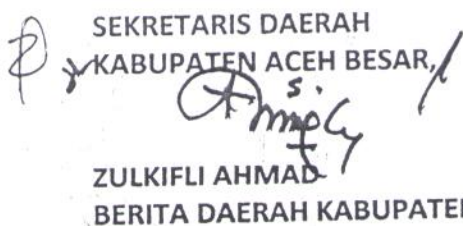 SEKRETARIS DAERAH
KABUPATEN ACEH BESAR,
ZULKIFLI AHMAD
BERITA DAERAH KABUPATEN